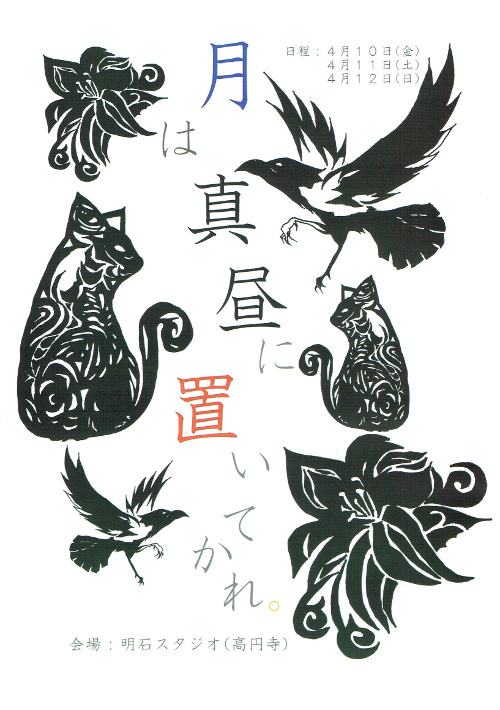 日程：４月１０日(金)
４月１１日(土)
４月１２日(日)
月は真昼に置いてかれ。
会場：明石スタジオ(高円寺)